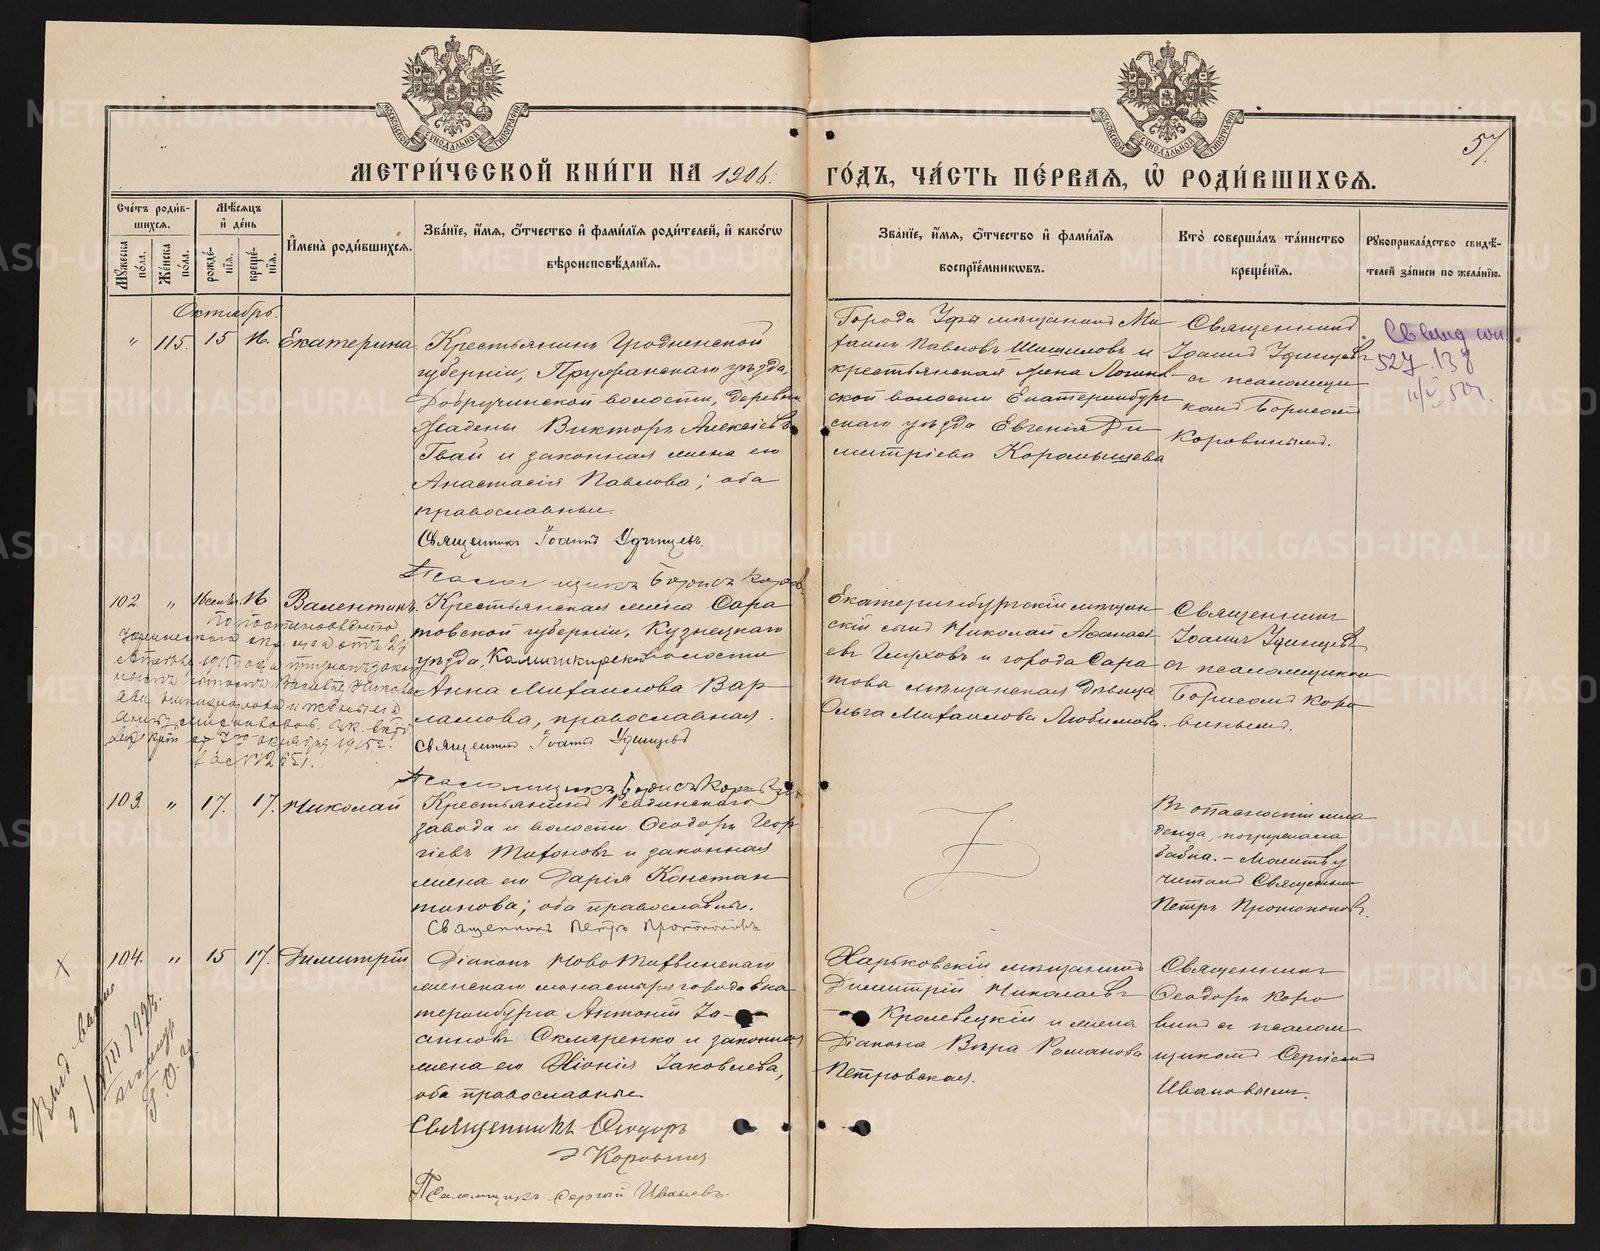 57.
МЕТРИ́ЧЕСКОЙ КНИ́ГИ НА 1906. ГО́ДЪ, ЧА́СТЬ ПЕ́РВАЯ, Ѡ҆ РОДИ́ВШИХСЯ.
Сче́тъ роди́в-
шихся.
Мꙋ́жеска по́ла.
Же́нска по́ла.
Мѣ́сяцъ
и҆ де́нь
рожде́-
нїя.
креще́-
нїя.
И҆мена̀ роди́вшихся.
Зва́нїе, и҆́мя, ѻ҆́тчество и҆ фами́лїя роди́телей, и҆ како́гѡ
вѣроисповѣ́данїя.
Зва́нїе, и҆́мя, ѻ҆́тчество и҆ фами́лїя
воспрїе́мникѡвъ.
Кто̀ соверша́лъ та́инство
креще́нїя.
Рꙋкоприкла́дство свидѣ́-
телей за́писи по жела́нїю.
Октябрь.
" 115. 15 16. Екатерина
Крестьянинъ Гродненской
губернiи, Пружанскаго уѣзда,
Добручинской волости, деревни
Викторъ Алексѣевъ
Гвай и законная жена его
Анастасiя Павлова; оба
православные.
Священникъ Iоаннъ Удинцевъ.
Псаломщикъ Борисъ Коров
Города Уфы мѣщанинъ Ми
хаилъ Павловъ Шишиловъ и
крестьянская
ской волости Екатеринбург
скаго уѣзда Евгенiя Ди
митрiева Коромыщева
Священникъ
Iоаннъ Удинцевъ
съ псаломщи
комъ Борисомъ
Коровинымъ.
527 138
102 " 16 16 Валентинъ.
Крестьянская жена Сара
товской губернiи, Кузнецкаго
уѣзда, Камышкирской волости
Анна Михаилова Вар
ламова, православная.
Священникъ Iоаннъ Удинцевъ
Псаломщикъ Борисъ Коровинъ
Екатеринбургскiй мѣщан
скiй сынъ Николай Аѳанасi
евъ Глуховъ и города Сара
това мѣщанская дѣвица
Ольга Михаилова Любимова.
Священникъ
Iоаннъ Удинцевъ
съ псаломщикомъ
Борисомъ Коро
винымъ.
103 " 17. 17. Николай
Крестьянинъ Ревдинскаго
завода и волости Ѳеодоръ Геор
гiевъ Тихоновъ и законная
жена его Дарiя Констан
тинова; оба православные.
Священникъ Петръ Протопоповъ
Въ опасности мла
денца, погружала
бабка. – Молитву
читалъ Священникъ
Петръ Протопоповъ.
104. " 15 17. Димитрiй
Дiаконъ Ново Тихвинскаго
женскаго монастыря города Ека
теринбурга Антонiй Iо-
анновъ Скляренко и законная
жена его Хiонiя Iаковлева,
оба православные.
Священникъ Ѳеодоръ
Коровинъ
Псаломщикъ Сергiй Ивановъ.
Харьковскiй мѣщанинъ
Димитрiй Николаевъ
Кролевецкiй и жена
Дiакона Вѣра Романова
Петровская.
Священникъ
Ѳеодоръ Коро
винъ съ псалом
щикомъ Сергiемъ
Ивановымъ.
METRIKI.GASO-URAL.RU